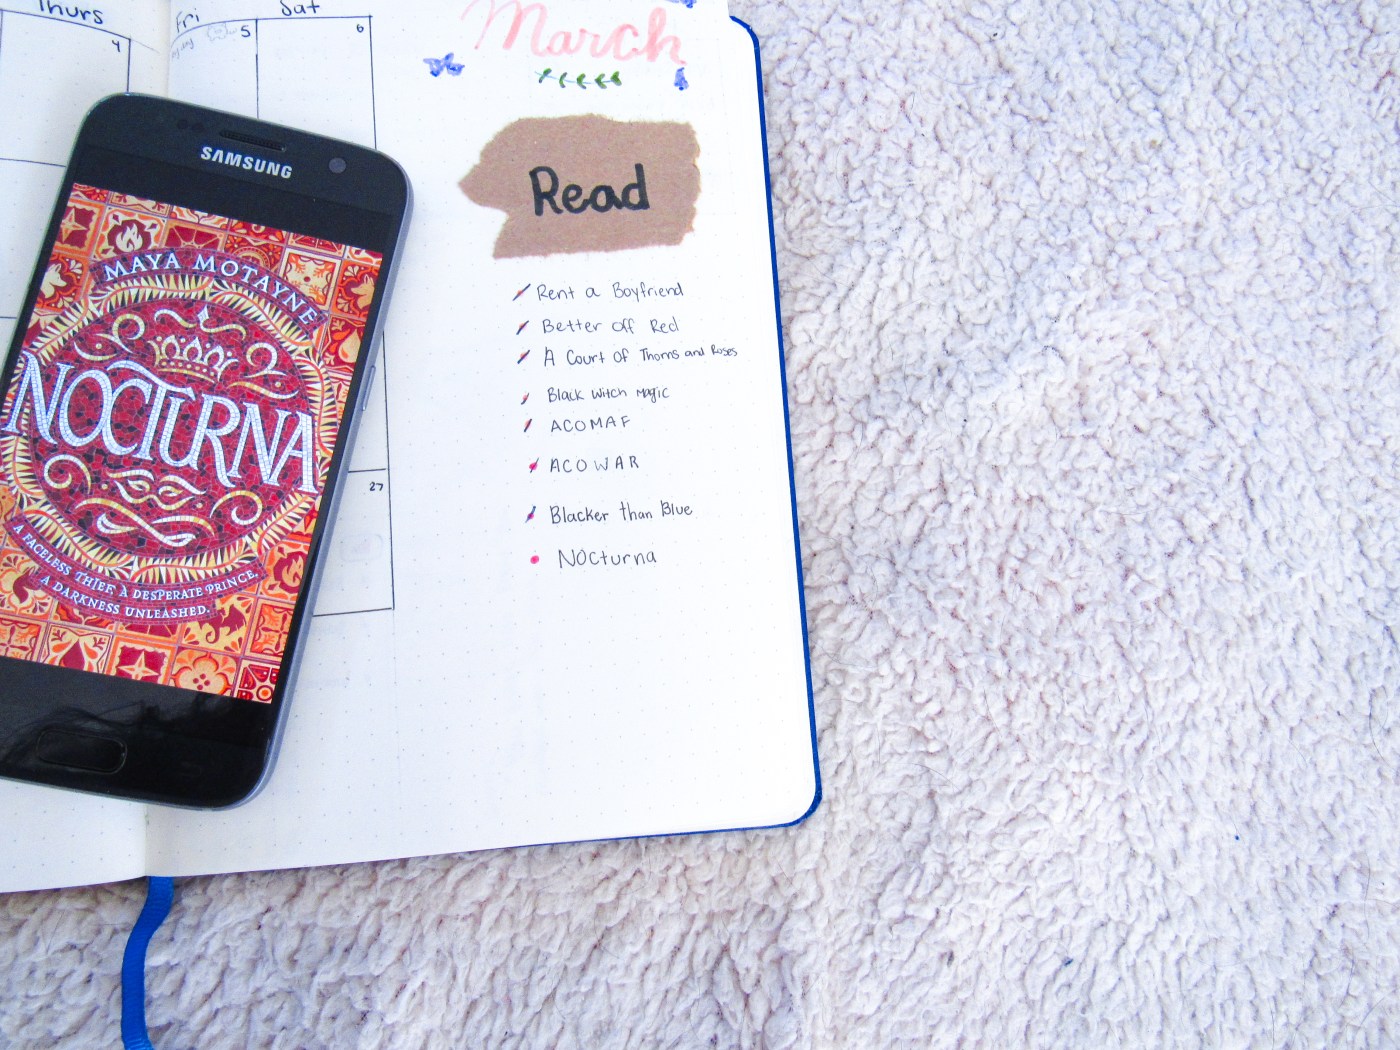 Thurs
Fri
Sat
4
5
6
27
SAMSUNG
MAYA MOTAYNE
NOCTURNA
A FACELESS THIEF. A DESPERATE PRINCE.
A DARKNESS UNLEASHED.
March
Read
Rent a Boyfriend
Better off Red
A Court of Thorns and Roses
Black Witch Magic
ACOMAF
ACOWAR
Blacker than Blue
Nocturna